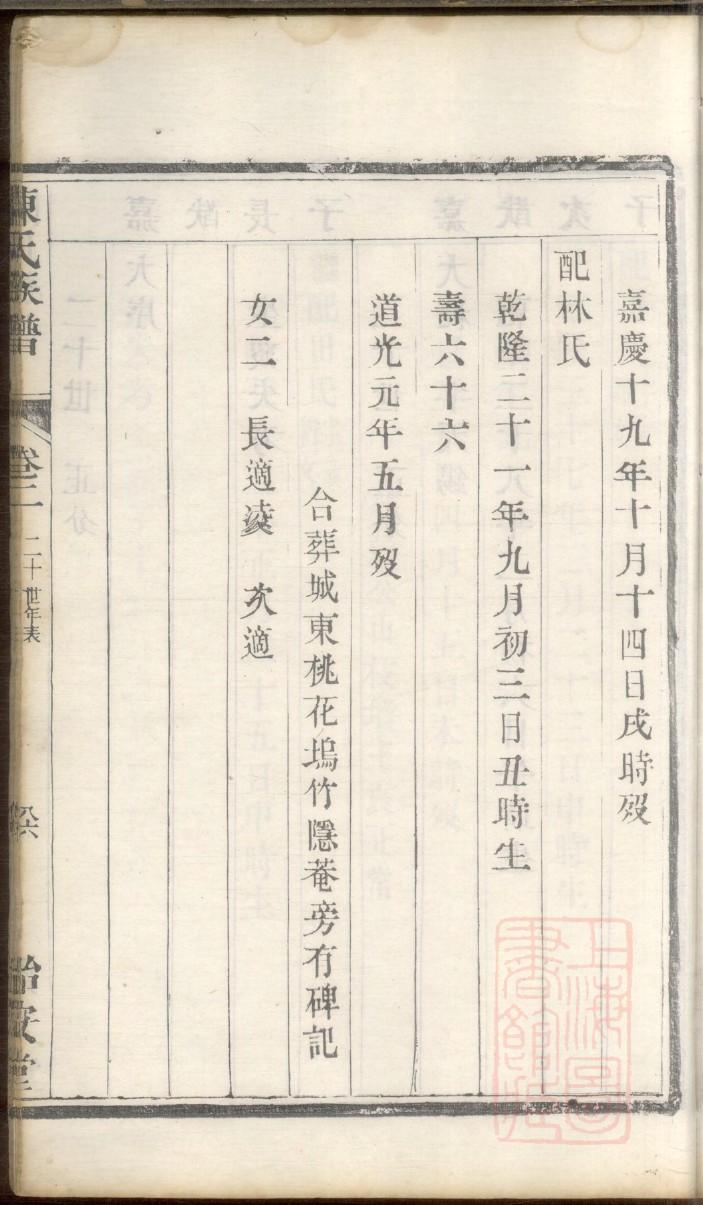 嘉慶十九年十月十四日戌時歿
配林氏
乾隆二十一年九月初三日丑時生
壽六十六
道光元年五月歿
合葬城東桃花塢竹隱菴旁有碑記
女二 長適淩 次適
陳氏族譜
卷二 二十世年表
怡安堂
上海圖書館藏